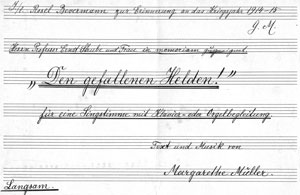 Frl. Resel Bevermann zur Erinnerung an das Kriegsjahr 1914-18
G. M.
Herrn Professor und Frau in memoriam zugeeignet
„Den gefallenen Helden!"
für eine Singstimme mit Klavier- oder Orgelbegleitung.
Text und Musik von
Margarethe Müller.
Langsam.